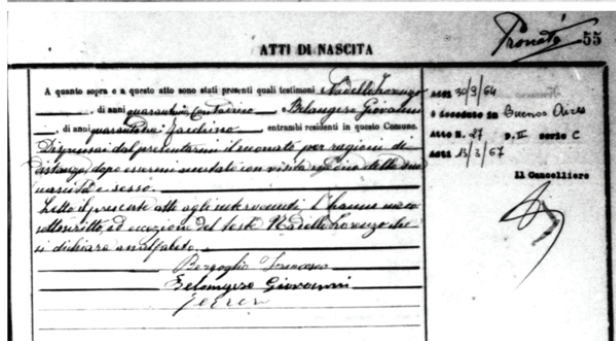 55
ATTI DI NASCITA
A quanto sopra e a questo atto sono stati presenti quali testimoni Nadelli Lorenzo
, di anni quarantun contadino Belangero Giovanni
, di anni quarantadue, entrambi residenti in questo Comune.
Dispensai dal presentarmi il neonato per ragioni di
distanza, dopo essermi accertato con visita della sua
nascita e sesso.
Letto il presente atto agli intervenuti l'hanno meco
sottoscritto, ad eccezione del teste Lorenzo che
si dichiara analfabeta.
Bergoglio Francesco
Belangero Giovanni
30/9/64
è deceduto in Buenos Aires
Atto N. 27 p. II serie C
Asti
Il Cancelliere